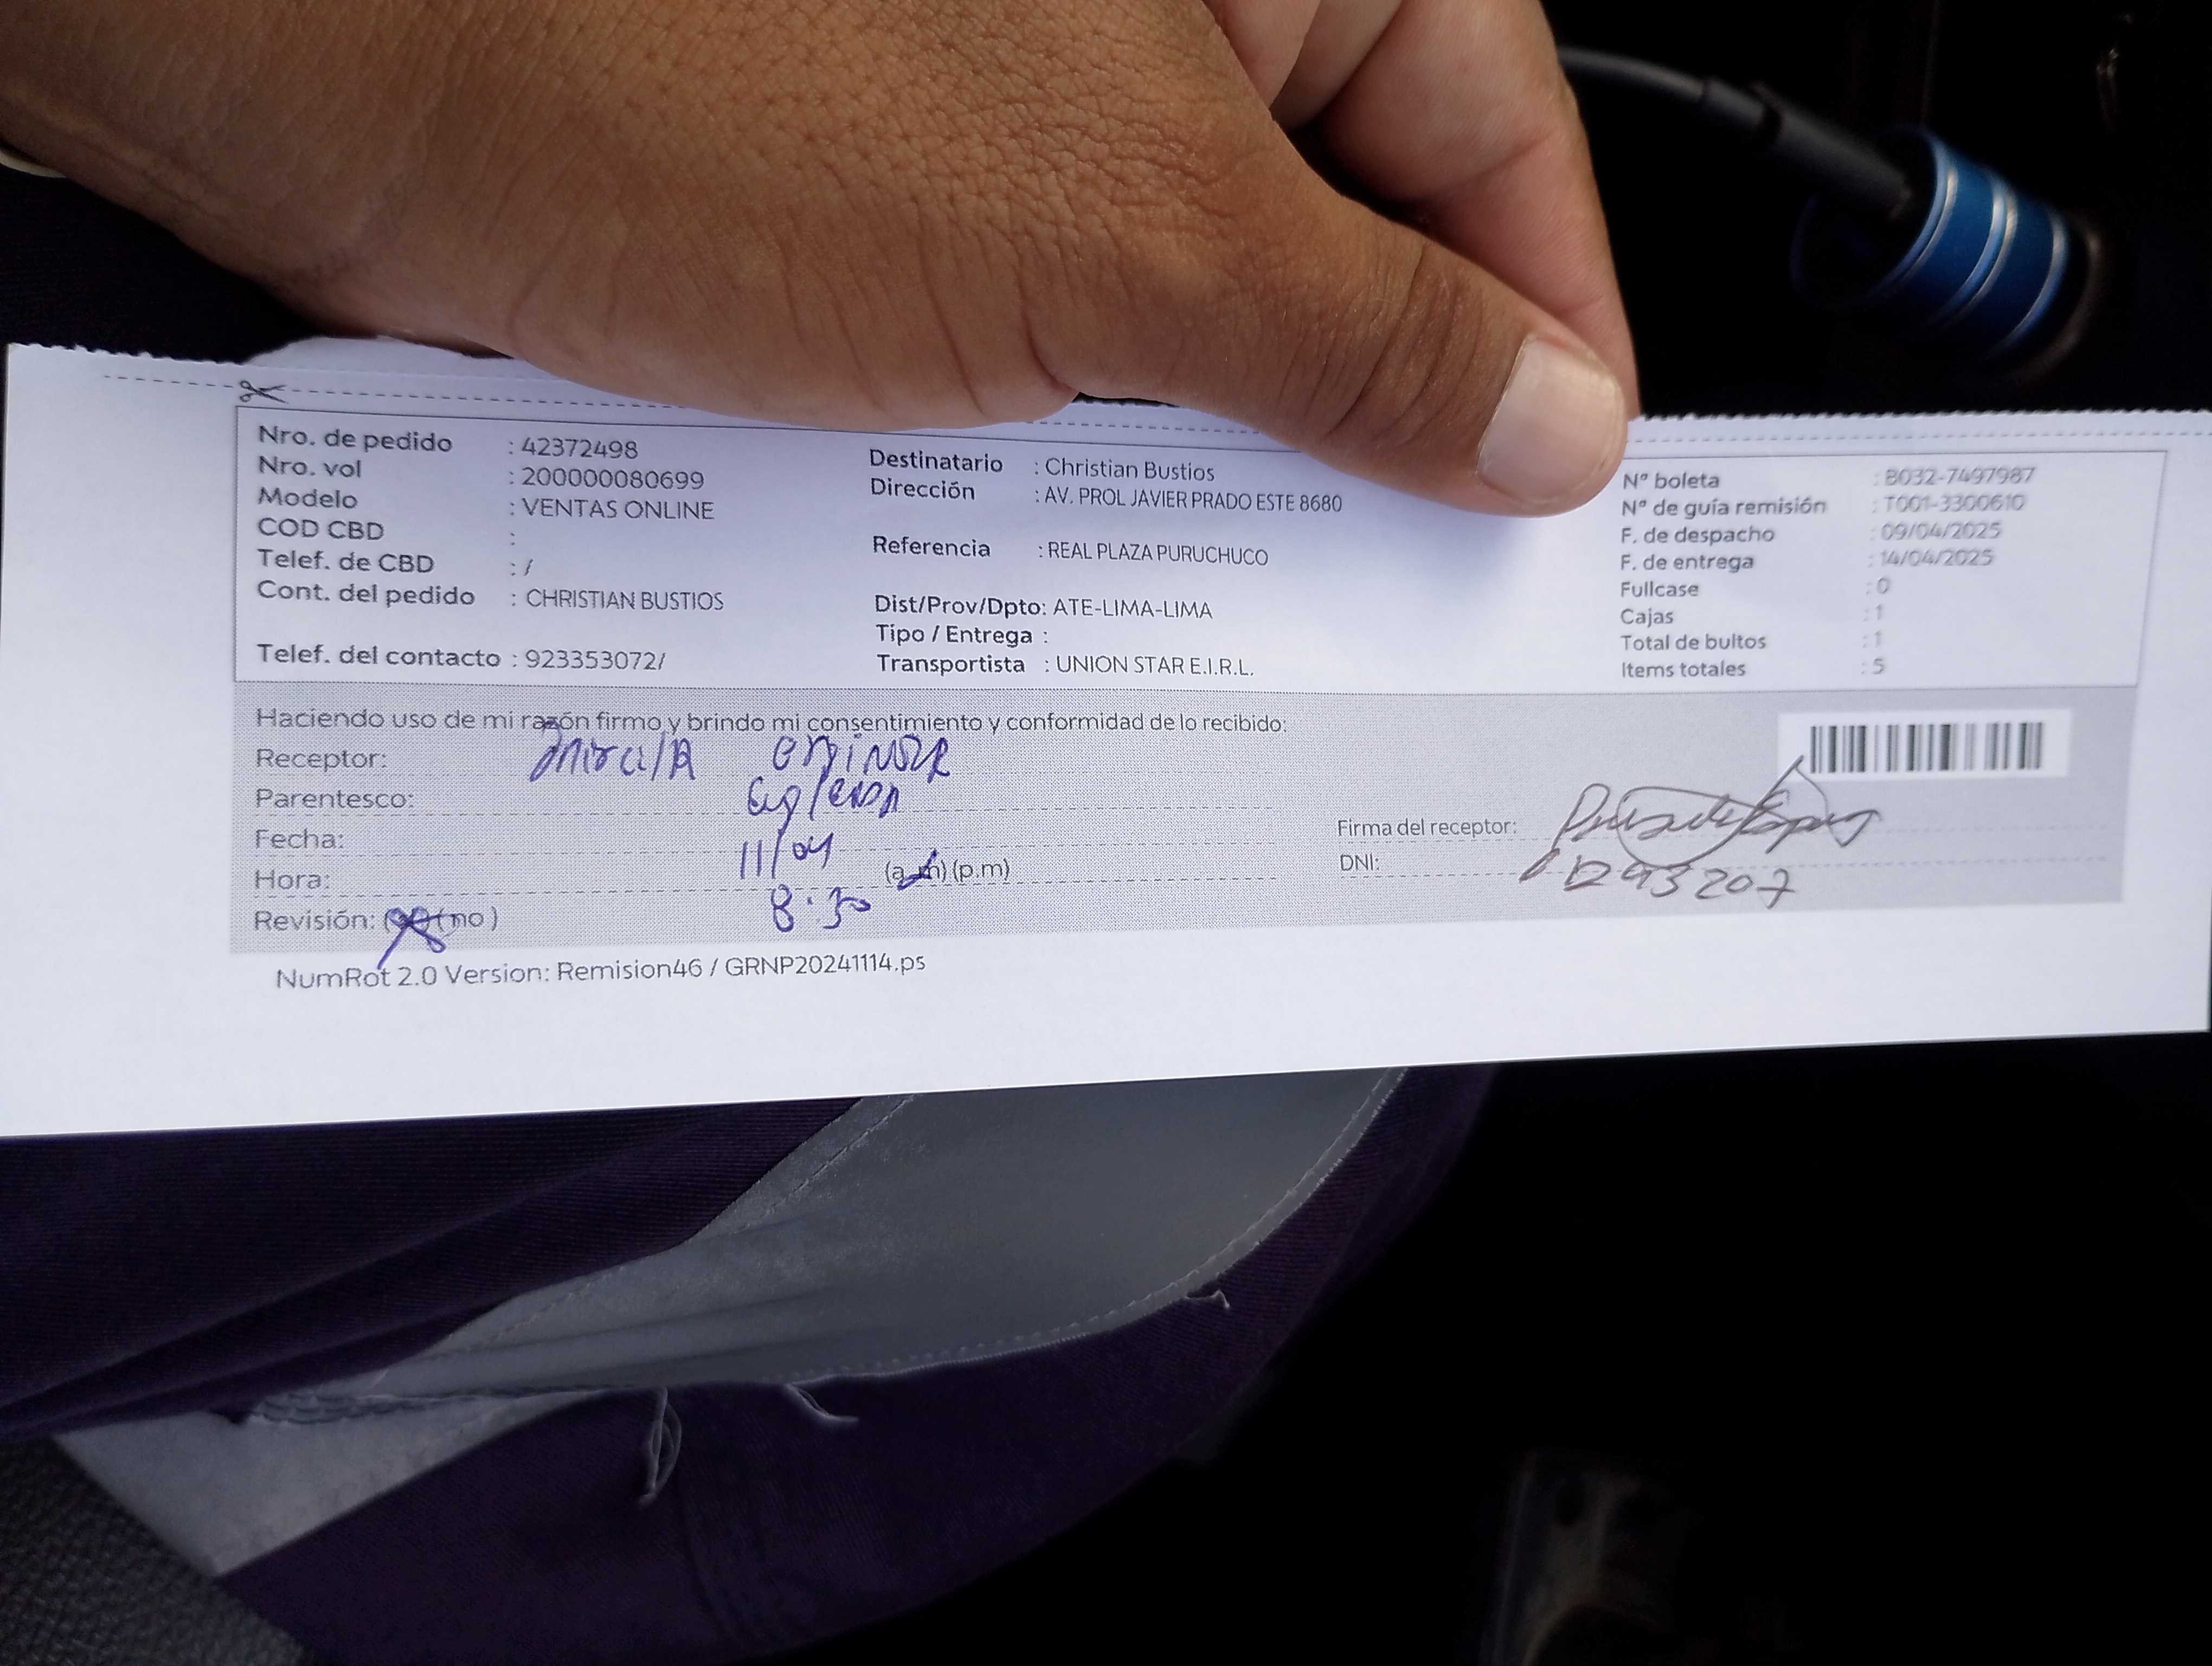 Nro. de pedido : 42372498
Nro. vol : 200000080699
Modelo : VENTAS ONLINE
COD CBD :
Telef. de CBD : /
Cont. del pedido : CHRISTIAN BUSTIOS
Telef. del contacto : 923353072/
Destinatario : Christian Bustios
Dirección : AV. PROL JAVIER PRADO ESTE 8680
Referencia : REAL PLAZA PURUCHUCO
Dist/Prov/Dpto: ATE-LIMA-LIMA
Tipo / Entrega :
Transportista : UNION STAR E.I.R.L.
Nº boleta : B032-7497987
Nº de guía remisión : T001-3300610
F. de despacho : 09/04/2025
F. de entrega : 14/04/2025
Fullcase : 0
Cajas : 1
Total de bultos : 1
Items totales : 5
Haciendo uso de mi razón firmo y brindo mi consentimiento y conformidad de lo recibido:
Receptor:
Parentesco:
Fecha: 11/04
Hora: 8:30 (a.m) (p.m)
Revisión: (no)
Firma del receptor:
DNI:
NumRot 2.0 Version: Remision46 / GRNP20241114.ps